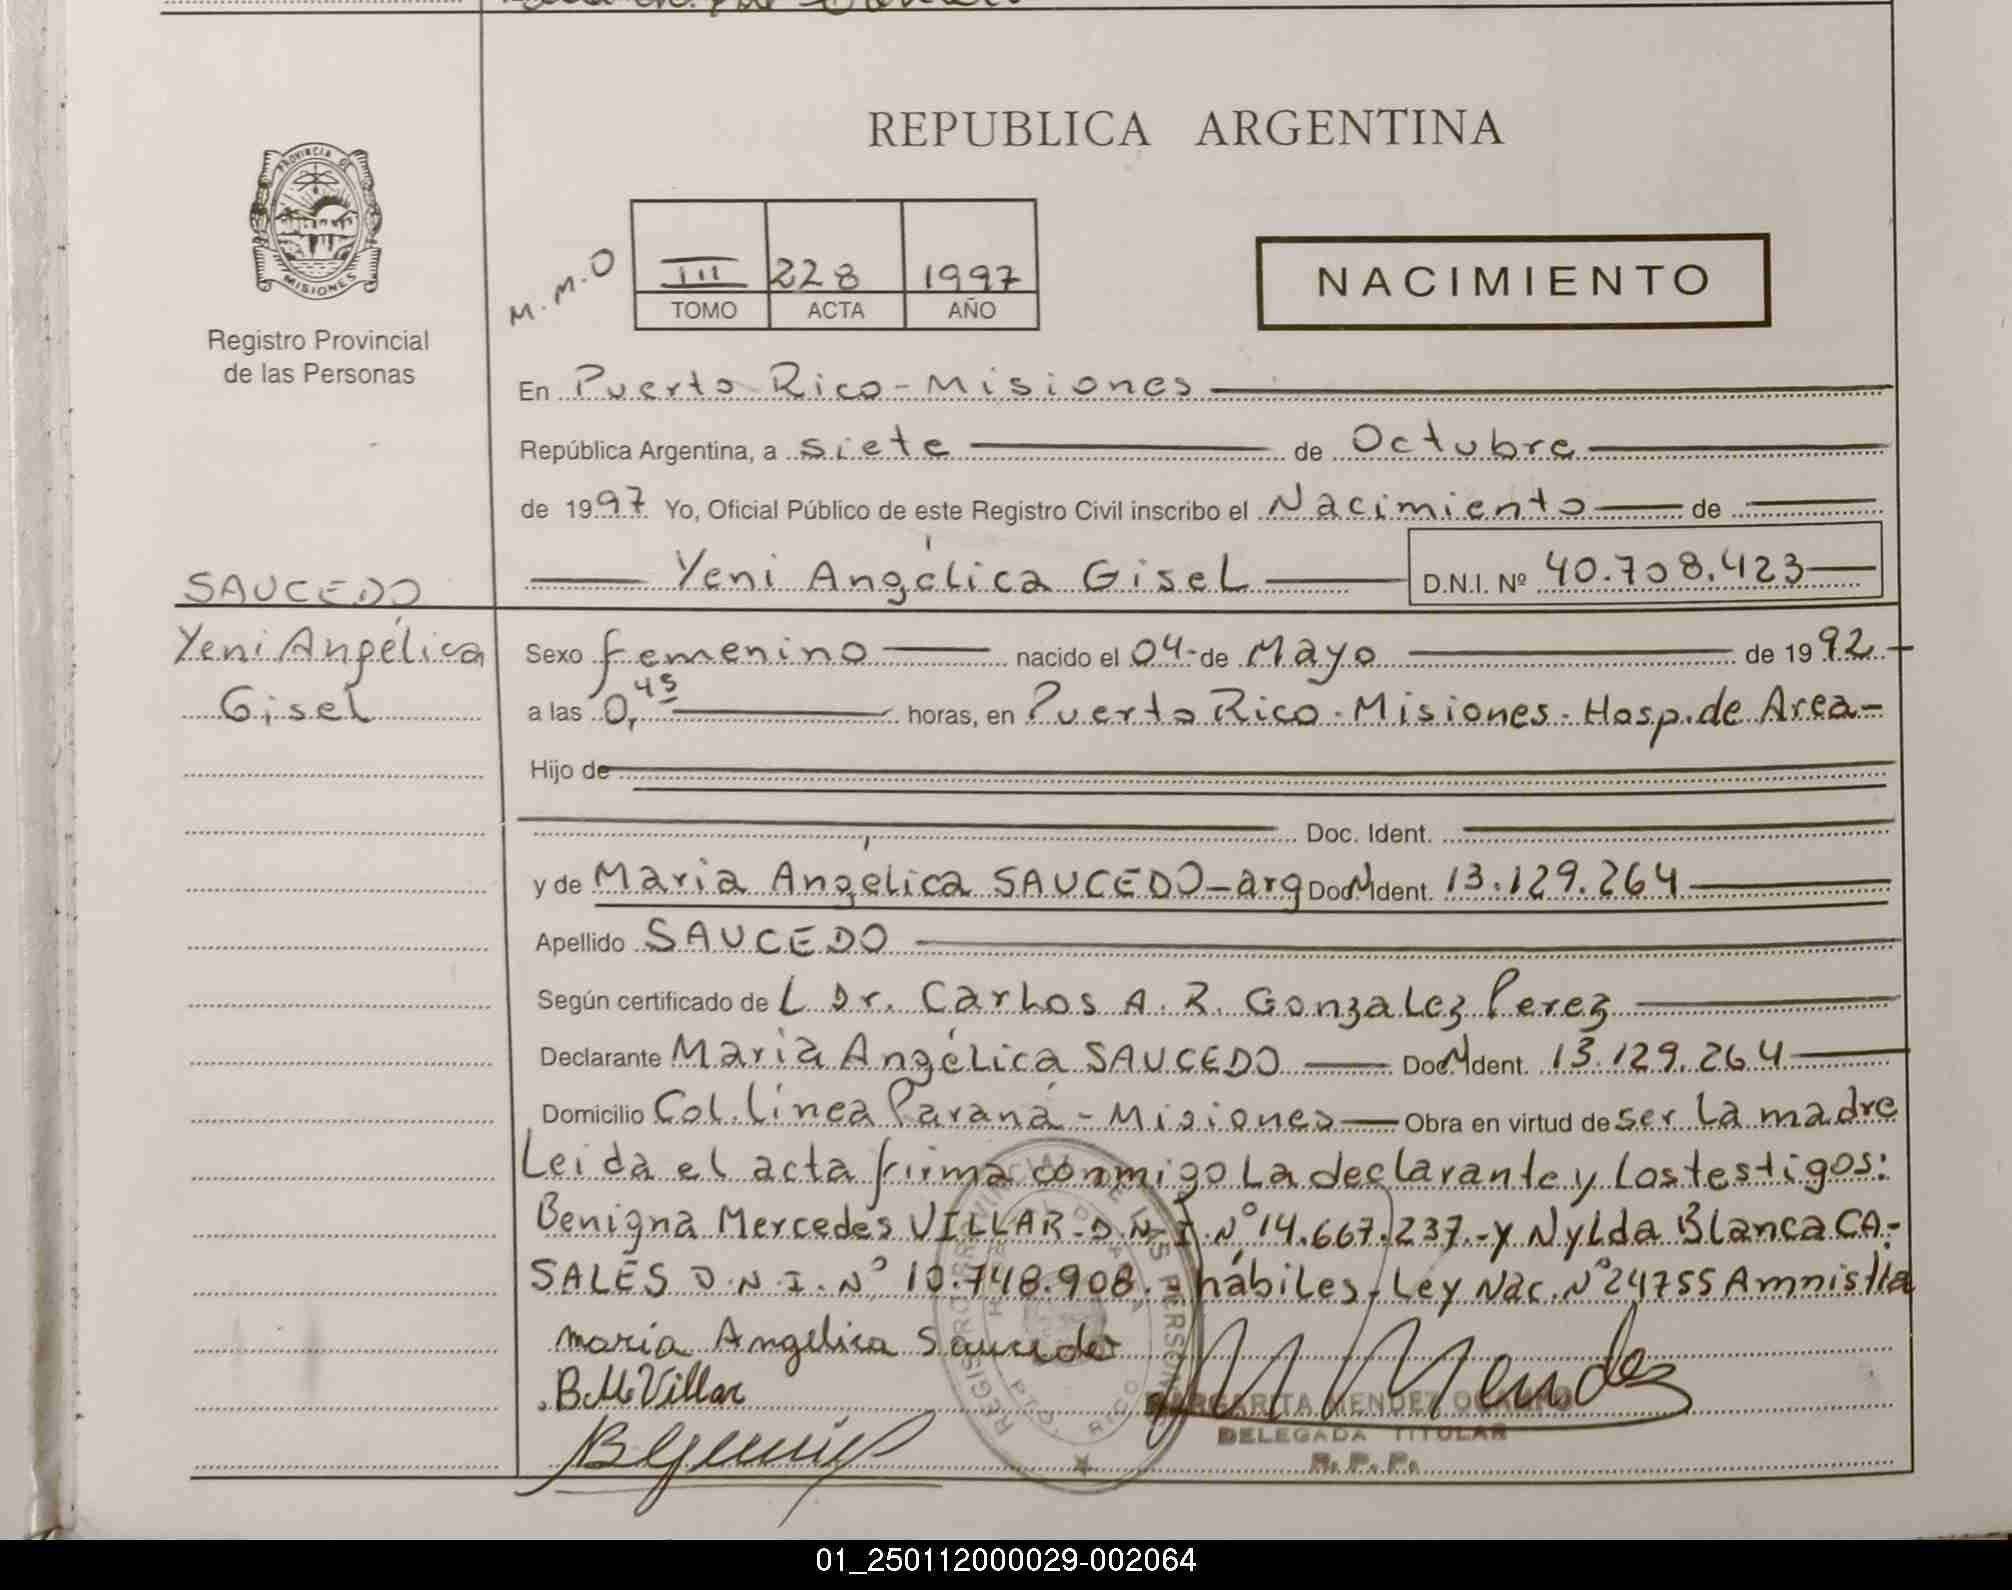 REPUBLICA ARGENTINA
PROVINCIA DE
MISIONES
Registro Provincial
de las Personas
M.M.O
III 228 1997
TOMO ACTA AÑO
NACIMIENTO
En Puerto Rico - Misiones
República Argentina, a siete de Octubre
de 1997 Yo, Oficial Público de este Registro Civil inscribo el Nacimiento de
Yeni Angélica Gisel D.N.I. Nº 40.708.423
SAUCEDO
Yeni Angélica
Gisel
Sexo femenino nacido el 04 de Mayo de 1992
a las 0,45 horas, en Puerto Rico - Misiones - Hosp. de Area-
Hijo de
Doc. Ident.
y de Maria Angélica SAUCEDO - arg Doc. Ident. 13.129.264
Apellido SAUCEDO
Según certificado de L Dr. Carlos A. R. Gonzalez Perez
Declarante Maria Angélica SAUCEDO Doc. Ident. 13.129.264
Domicilio Col. Línea Paraná - Misiones Obra en virtud de ser la madre
Leida el acta firma conmigo La declarante y los testigos:
Benigna Mercedes VILLAR - D.N.I. Nº 14.667.237.- y Nylda Blanca CA-
SALES D.N.I. Nº 10.748.908.- hábiles - Ley Nac. Nº 24755 Amnistia
maria Angelica Saucedo
B.M.Villar
M Mendez
MARGARITA MENDEZ
DELEGADA TITULAR
R. P. P.
REGISTRO PROVINCIAL DE LAS PERSONAS
PTO. RICO
01_250112000029-002064